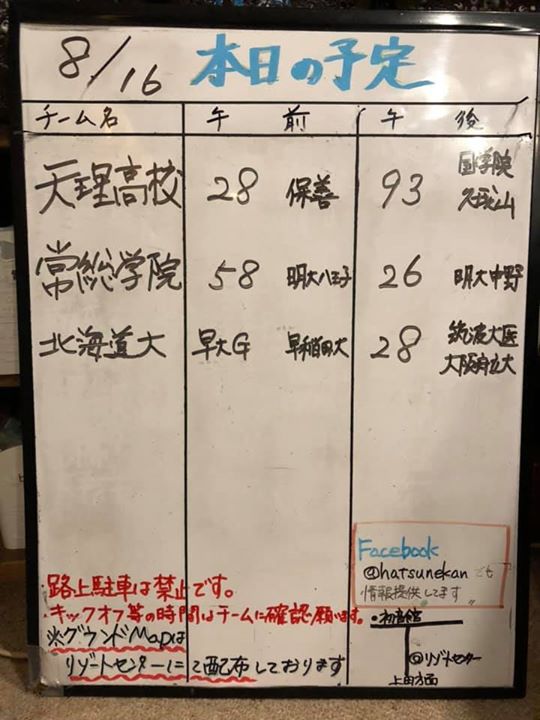 8/16 本日の予定
チーム名 午前 午後
天理高校 28 保善 93 国学院久我山
常総学院 58 明大八王子 26 明大中野
北海道大 早大G 早稲田大 28 筑波大医 大阪府立大
Facebook
@hatsunekan でも
情報提供してます
・路上駐車は禁止です。
・キックオフ等の時間はチームに確認願います。
※グランドMapは
リゾートセンターにて配布しております
・初音館
◎リゾートセンター
上田方面